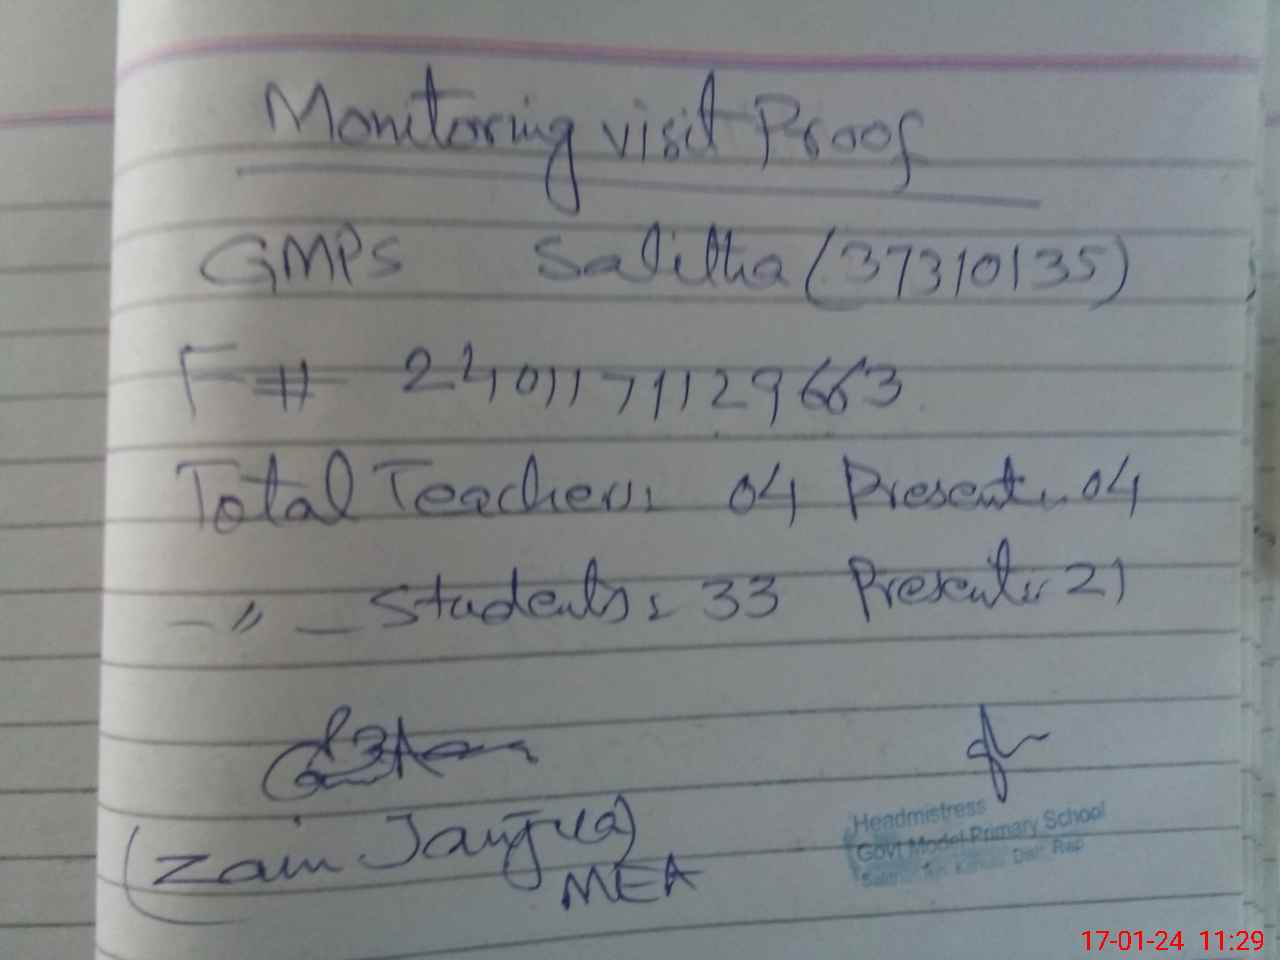 Monitoring visit Proof
GMPS Salitha (37310135)
F# 2401171129663
Total Teachers: 04 Present: 04
–〃– Students: 33 Present: 21
(Zain Janjua)
MEA
Headmistress
Govt Model Primary School
Distt Rwp
17-01-24 11:29